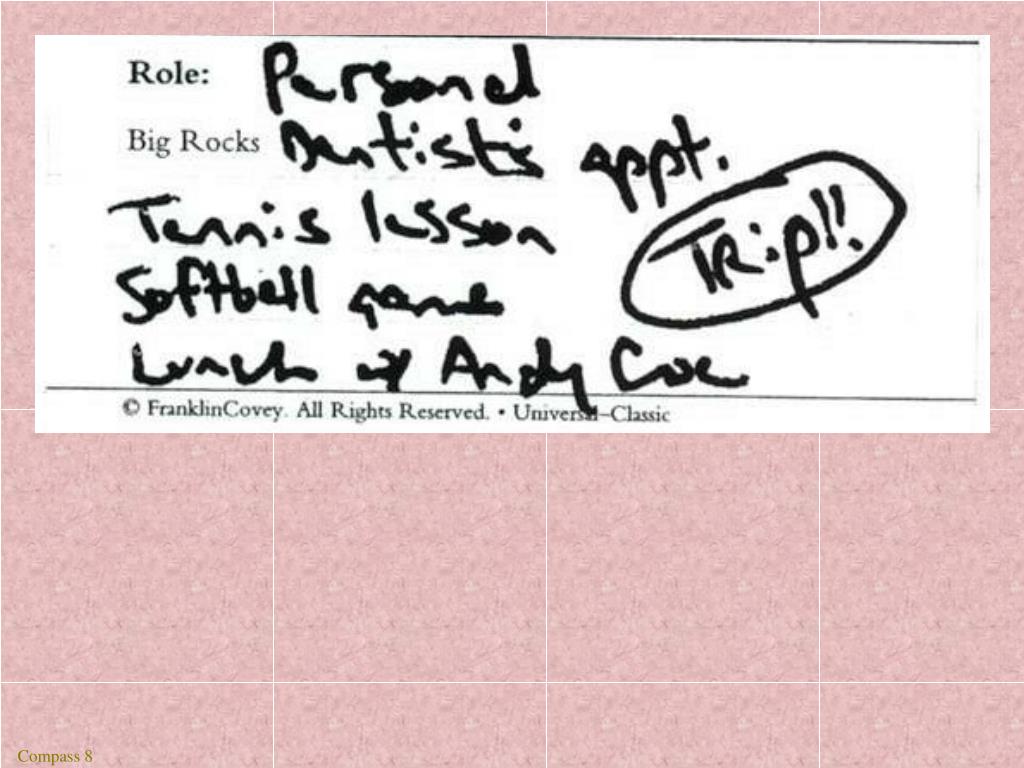 Role: Personal
Big Rocks Dentist's appt.
Tennis lesson
TRip!!
Softball game
Lunch w/ Andy Coe
© FranklinCovey. All Rights Reserved. • Universal–Classic
Compass 8